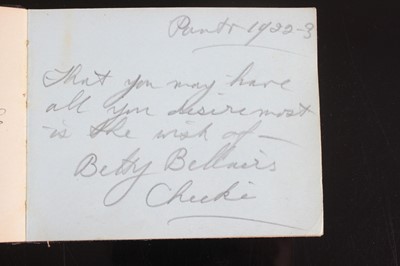 Panto 1922-3
That you may have
all you desire most
is the wish of —
Betty Bellairs
Cheekie